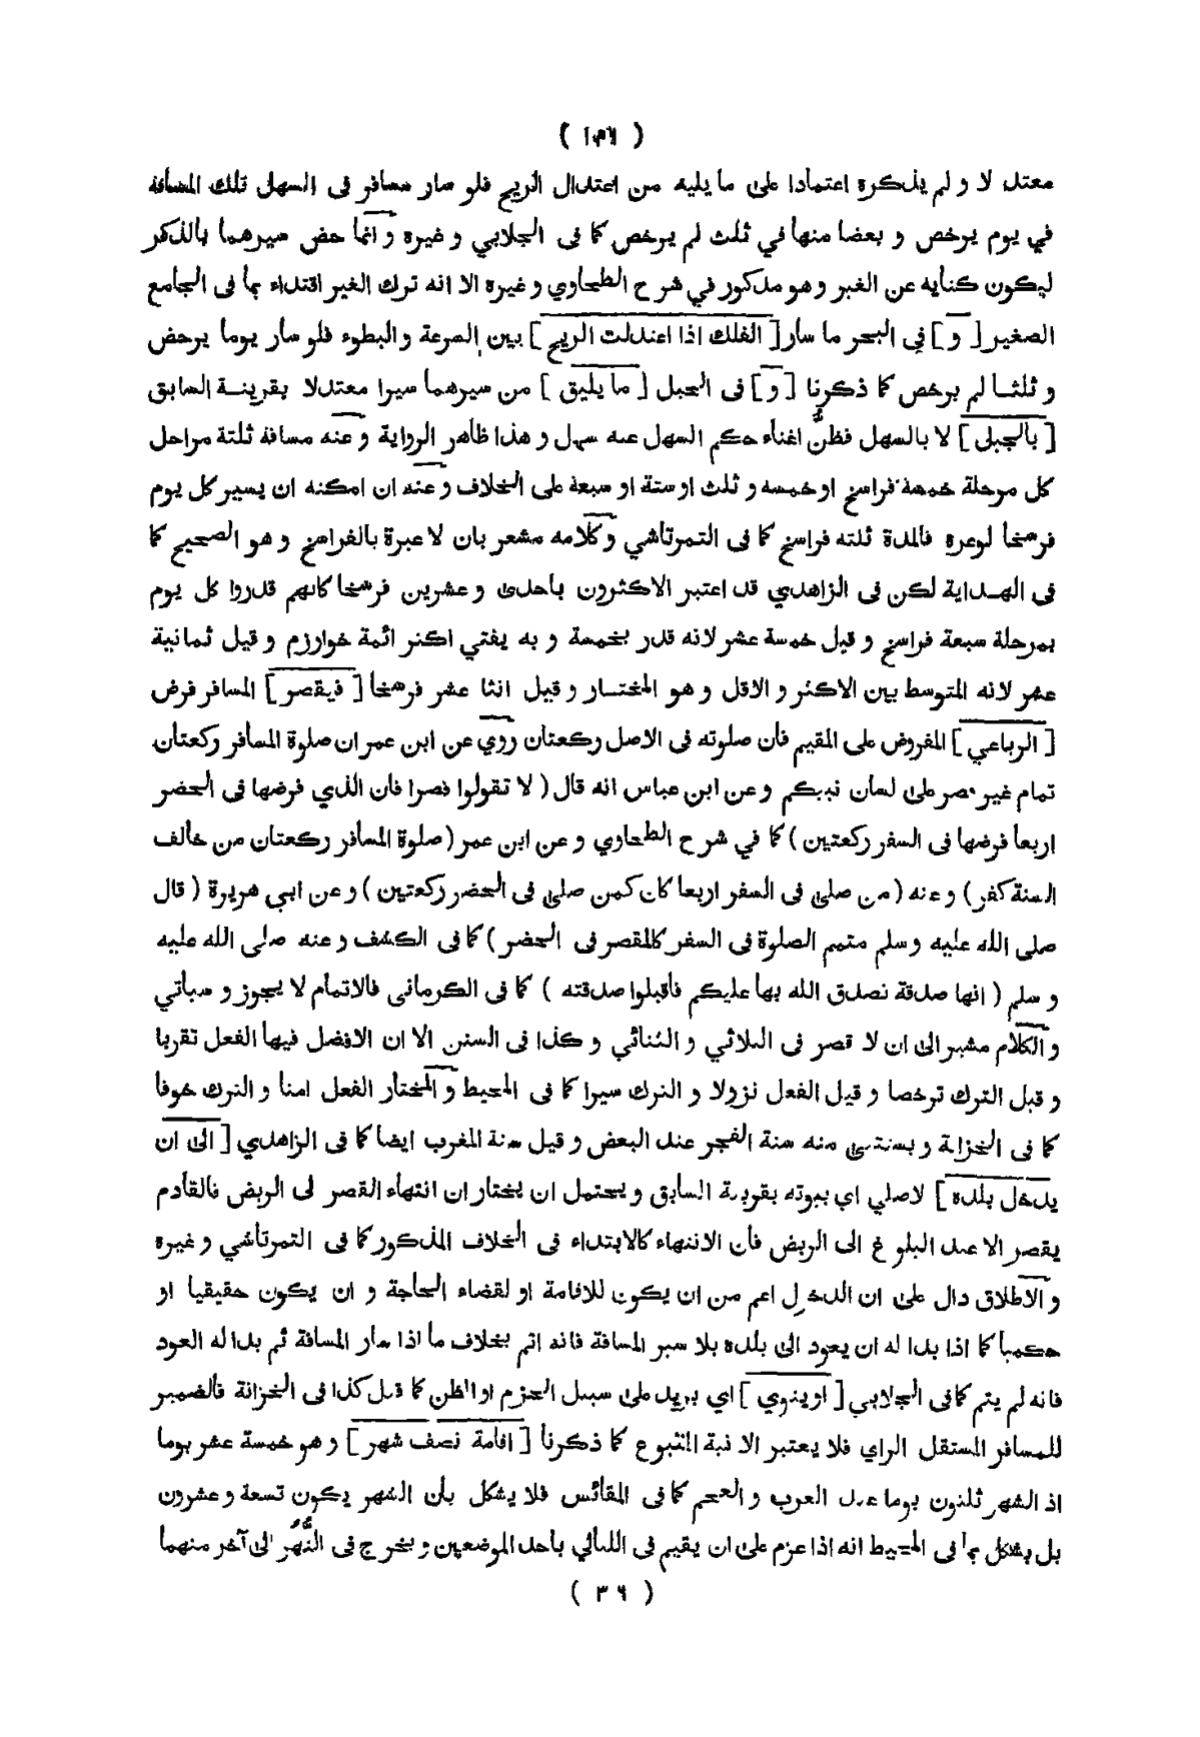 معتدلا و لم يذكره اعتمادا على ما يليه من اعتدال الريح فلو سار مسافر فى السهل تلك المسافة
في يوم يرخص و بعضا منها في ثلث لم يرخص كما فى الجلابي و غيره و انما خص سيرهما بالذكر
ليكون كنايه عن الغير و هو مذكور في شرح الطحاوي و غيره الا انه ترك الغير اقتداء بما فى الجامع
الصغير [ و ] في البحر ما سار [ الفلك اذا اعتدلت الريح ] بين السرعة و البطوء فلو سار يوما يرخص
و ثلثا لم يرخص كما ذكرنا [ و ] فى الجبل [ ما يليق ] من سيرهما سيرا معتدلا بقرينة السابق
[ بالجبلى ] لا بالسهل فظن اغناء حكم السهل عنه سهل و هذا ظاهر الرواية و عنه مسافة ثلثة مراحل
كل مرحلة خمسة فراسخ او خمسه و ثلث او ستة او سبعة على الخلاف و عنه ان امكنه ان يسير كل يوم
فرسخا لوعره فالمدة ثلثه فراسخ كما فى التمرتاشي و كلامه مشعر بان لا عبرة بالفراسخ و هو الصحيح كما
فى الهداية لكن فى الزاهدي قد اعتبر الاكثرون باحدى و عشرين فرسخا كانهم قدروا كل يوم
بمرحلة سبعة فراسخ و قيل خمسة عشر لانه قدر بخمسة و به يفتي اكثر ائمة خوارزم و قيل ثمانية
عشر لانه المتوسط بين الاكثر و الاقل و هو المختار و قيل اثنا عشر فرسخا [ فيقصر ] المسافر فرض
[ الرباعي ] المفروض على المقيم فان صلوته فى الاصل ركعتان روي عن ابن عمر ان صلوة المسافر ركعتان
تمام غير قصر على لسان نبيكم و عن ابن عباس انه قال ( لا تقولوا قصرا فان الذي فرضها فى الحضر
اربعا فرضها فى السفر ركعتين ) كما في شرح الطحاوي و عن ابن عمر ( صلوة المسافر ركعتان من خالف
السنة كفر ) و عنه ( من صلى فى السفر اربعا كان كمن صلى فى الحضر ركعتين ) و عن ابي هريرة ( قال
صلى الله عليه وسلم متمم الصلوة فى السفر كالمقصر فى الحضر ) كما فى الكشف و عنه صلى الله عليه
و سلم ( انها صدقة تصدق الله بها عليكم فاقبلوا صدقته ) كما فى الكرمانى فالاتمام لا يجوز و سياتي
و الكلام مشير الى ان لا قصر فى الثلاثي و الثنائي و كذا فى السنن الا ان الافضل فيها الفعل تقربا
و قيل الترك ترخصا و قيل الفعل نزولا و الترك سيرا كما فى المحيط و المختار الفعل امنا و الترك خوفا
كما فى الخزانة و يستثنى منه سنة الفجر عند البعض و قيل سنة المغرب ايضا كما فى الزاهدي [ الى ان
يدخل بلده ] الاصلي اي بيوته بقرينة السابق و يحتمل ان يختار ان انتهاء القصر الى الربض فالقادم
يقصر الا عند البلوغ الى الربض فان الانتهاء كالابتداء فى الخلاف المذكور كما فى التمرتاشي و غيره
و الاطلاق دال على ان الدخول اعم من ان يكون للاقامة او لقضاء الحاجة و ان يكون حقيقيا او
حكميا كما اذا بدا له ان يعود الى بلده بلا سير المسافة فانه اتم بخلاف ما اذا سار المسافة ثم بدا له العود
فانه لم يتم كما فى الجلابي [ او ينوي ] اي يريد على سبيل الجزم او الظن كما قيل كذا فى الخزانة فالضمير
للمسافر المستقل الراي فلا يعتبر الا نية المتبوع كما ذكرنا [ اقامة نصف شهر ] و هو خمسة عشر يوما
اذ الشهر ثلثون يوما عند العرب و العجم كما فى المقائس فلا يشكل بان الشهر يكون تسعة و عشرون
بل يشكل بما فى المحيط انه اذا عزم على ان يقيم فى الليالي باحد الموضعين و يخرج فى النهر الى آخر منهما
( ٣٦ )